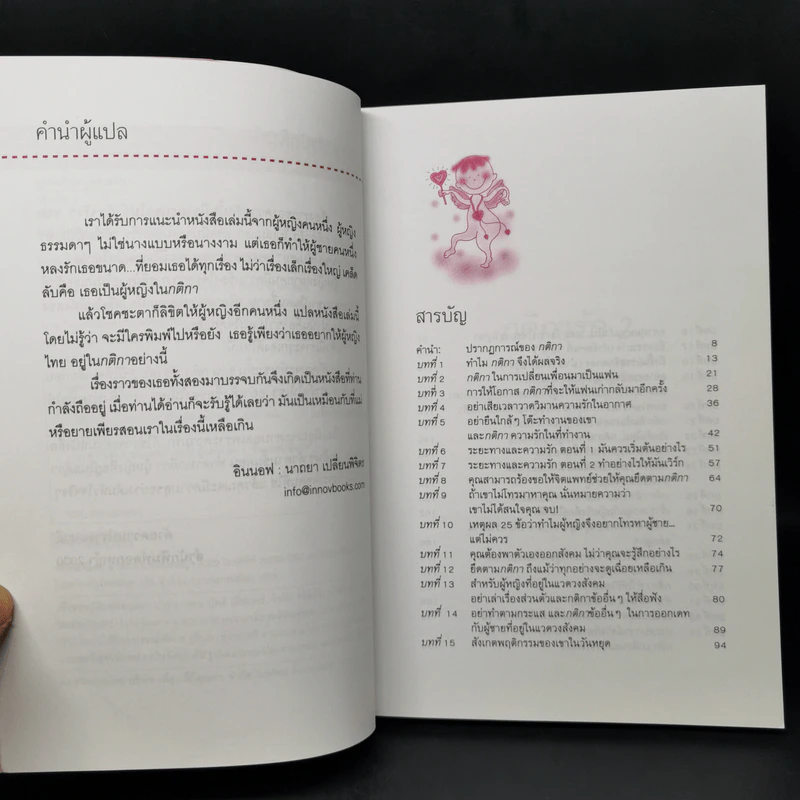 คำนำผู้แปล
เราได้รับการแนะนำหนังสือเล่มนี้จากผู้หญิงคนหนึ่ง ผู้หญิง
ธรรมดาๆ ไม่ใช่นางแบบหรือนางงาม แต่เธอก็ทำให้ผู้ชายคนหนึ่ง
หลงรักเธอขนาด...ที่ยอมเธอได้ทุกเรื่อง ไม่ว่าเรื่องเล็กเรื่องใหญ่ เคล็ด
ลับคือ เธอเป็นผู้หญิงในกติกา
แล้วโชคชะตาก็ลิขิตให้ผู้หญิงอีกคนหนึ่ง แปลหนังสือเล่มนี้
โดยไม่รู้ว่า จะมีใครพิมพ์ไปหรือยัง เธอรู้เพียงว่าเธออยากให้ผู้หญิง
ไทย อยู่ในกติกาอย่างนี้
เรื่องราวของเธอทั้งสองมาบรรจบกันจึงเกิดเป็นหนังสือที่ท่าน
กำลังถืออยู่ เมื่อท่านได้อ่านก็จะรับรู้ได้เลยว่า มันเป็นเหมือนกับที่แม่
หรือยายเพียรสอนเราในเรื่องนี้เหลือเกิน
อินนอฟ : นาถยา เปลี่ยนพิจิตร
info@innovbooks.com
สารบัญ
คำนำ: ปรากฏการณ์ของ กติกา 8
บทที่ 1 ทำไม กติกา จึงได้ผลจริง 13
บทที่ 2 กติกา ในการเปลี่ยนเพื่อนมาเป็นแฟน 21
บทที่ 3 การให้โอกาส กติกาที่จะให้แฟนเก่ากลับมาอีกครั้ง 28
บทที่ 4 อย่าเสียเวลาวาดวิมานความรักในอากาศ 36
บทที่ 5 อย่ายืนใกล้ๆ โต๊ะทำงานของเขา
และกติกา ความรักในที่ทำงาน 42
บทที่ 6 ระยะทางและความรัก ตอนที่ 1 มันควรเริ่มต้นอย่างไร 51
บทที่ 7 ระยะทางและความรัก ตอนที่ 2 ทำอย่างไรให้มันเวิร์ก 57
บทที่ 8 คุณสามารถร้องขอให้จิตแพทย์ช่วยให้คุณยึดตามกติกา 64
บทที่ 9 ถ้าเขาไม่โทรมาหาคุณ นั่นหมายความว่า
เขาไม่ได้สนใจคุณ จบ! 70
บทที่ 10 เหตุผล 25 ข้อว่าทำไมผู้หญิงจึงอยากโทรหาผู้ชาย...
แต่ไม่ควร 72
บทที่ 11 คุณต้องพาตัวเองออกสังคม ไม่ว่าคุณจะรู้สึกอย่างไร 74
บทที่ 12 ยึดตามกติกา ถึงแม้ว่าทุกอย่างจะดูเฉื่อยเหลือเกิน 77
บทที่ 13 สำหรับผู้หญิงที่อยู่ในแวดวงสังคม
อย่าเล่าเรื่องส่วนตัวและกติกาข้ออื่นๆ ให้สื่อฟัง 80
บทที่ 14 อย่าทำตามกระแส และกติกาข้ออื่นๆ ในการออกเดท
กับผู้ชายที่อยู่ในแวดวงสังคม 89
บทที่ 15 สังเกตพฤติกรรมของเขาในวันหยุด 94